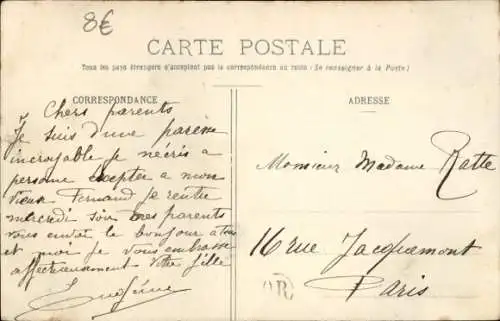 8€
CARTE POSTALE
Tous les pays étrangers n'acceptent pas la correspondance au recto (Se renseigner à la Poste)
CORRESPONDANCE
Chers parents
Je suis d'une paresse
incroyable je n'écris a
personne excepter a mon
vieux Fernand je rentre
mercredi soir mes parents
vous envoit le bonjour a tous
et moi je vous embrasse
affectueusement Votre fille
Eugénie
ADRESSE
Monsieur Madame Ratte
16 rue Jacquemont
Paris
OR